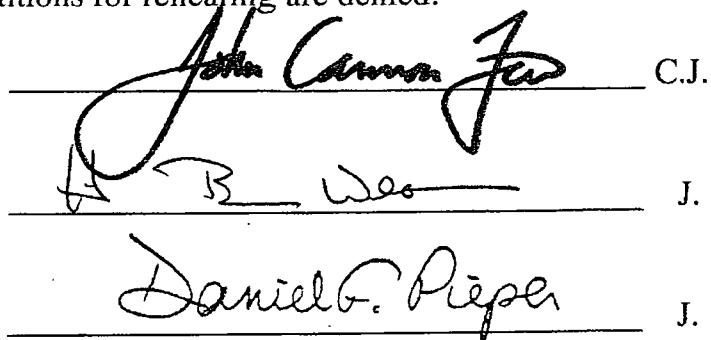 titions for rehearing are denied.
John Cannon Few C.J.
H. B J.
Daniel F. Pieper J.